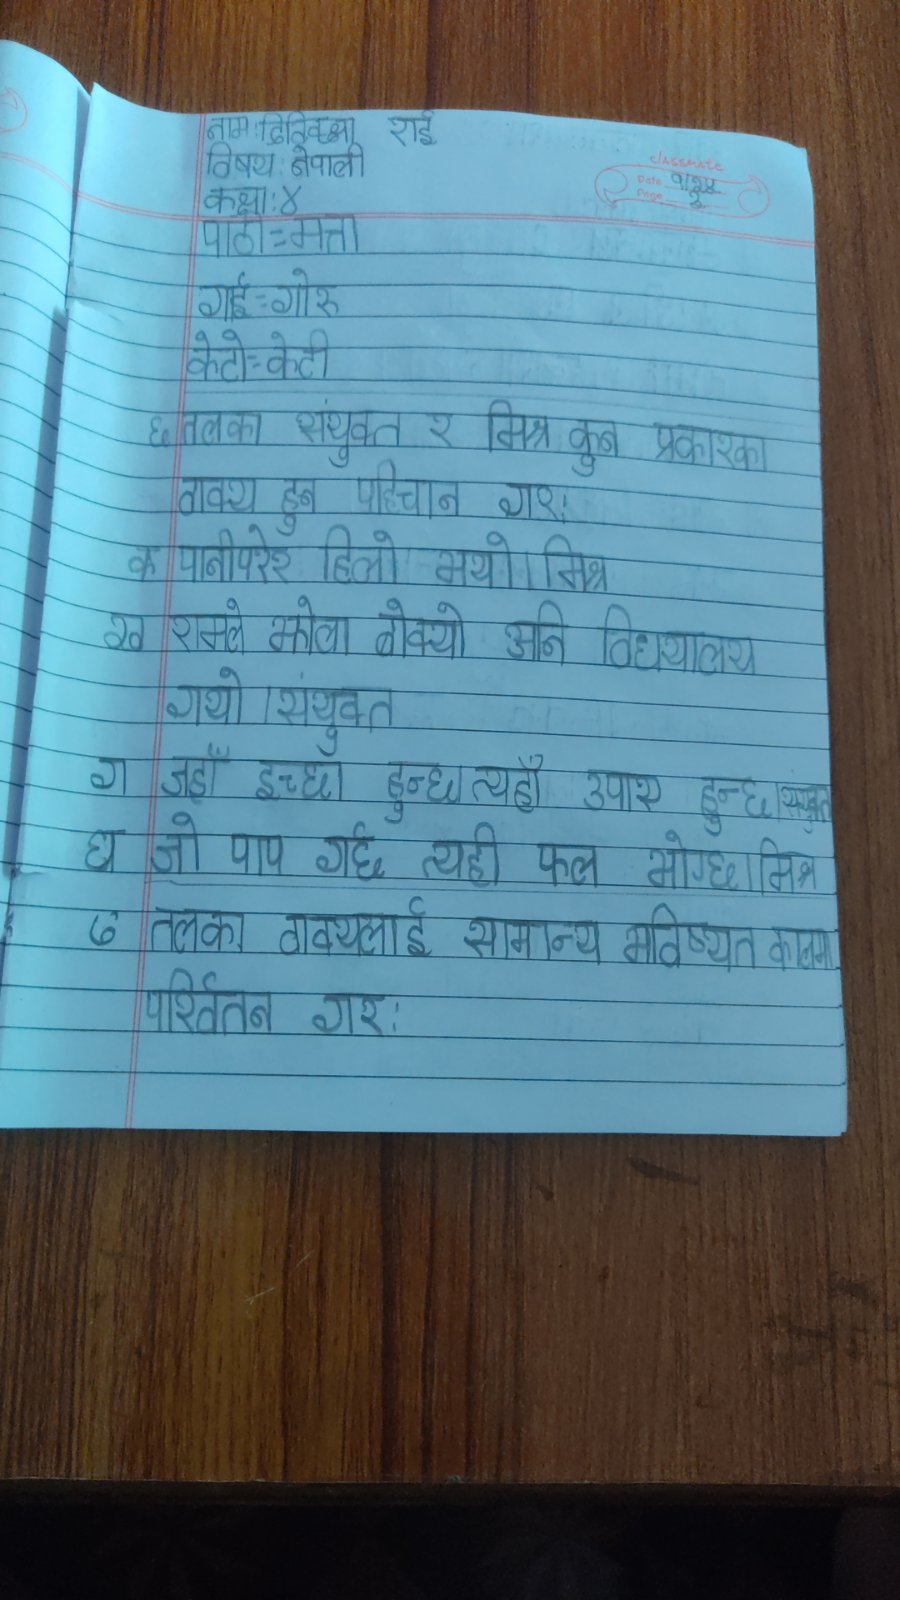 नाम: दितिक्षा राई
विषय: नेपाली
कक्षा: ४
classmate
Date १/२४
Page 2
पाठी=मत्ता
गाई=गोरु
केटो=केटी
६ तलका संयुक्त र मिश्र कुन प्रकारका
वाक्य हुन पहिचान गर:
क पानीपरेर हिलो भयो। मिश्र
ख रामले झोला बोक्यो अनि विद्ययालय
गयो। संयुक्त
ग जहाँ इच्छा हुन्छ। त्यहाँ उपाय हुन्छ। संयुक्त
घ जो पाप गर्छ त्यही फल भोग्छ। मिश्र
७ तलका वाक्यलाई सामान्य भविष्यत कालमा
परिर्वतन गर: